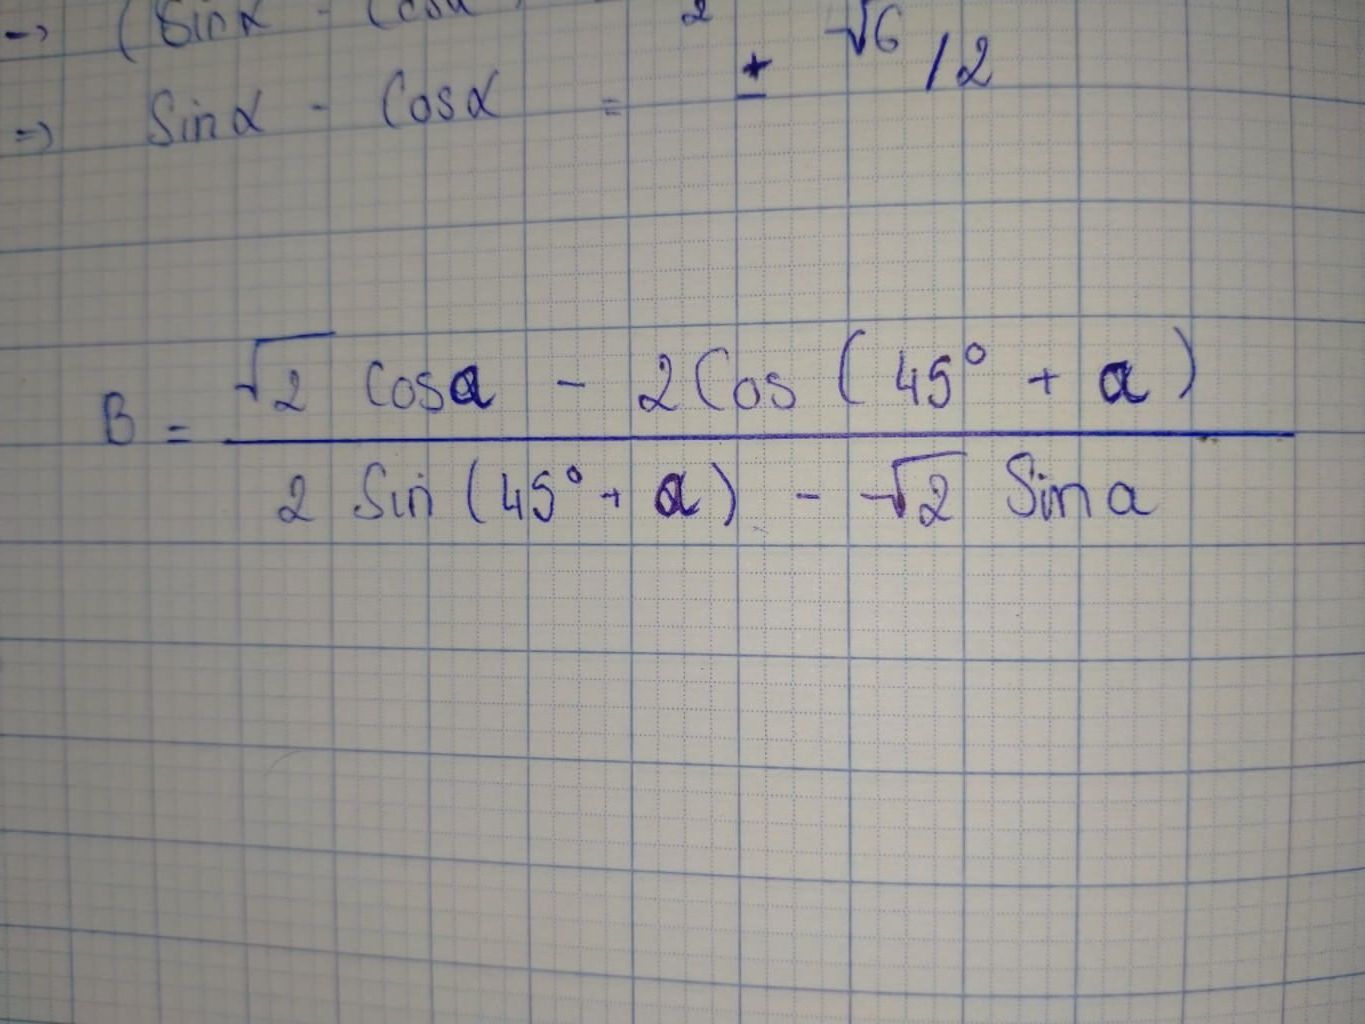 → (Sinα - Cosα 2
⇒ Sinα - Cosα = ± √6 / 2
B = √2 Cosa - 2Cos (45° + a)
2 Sin (45° + a) - √2 Sin a